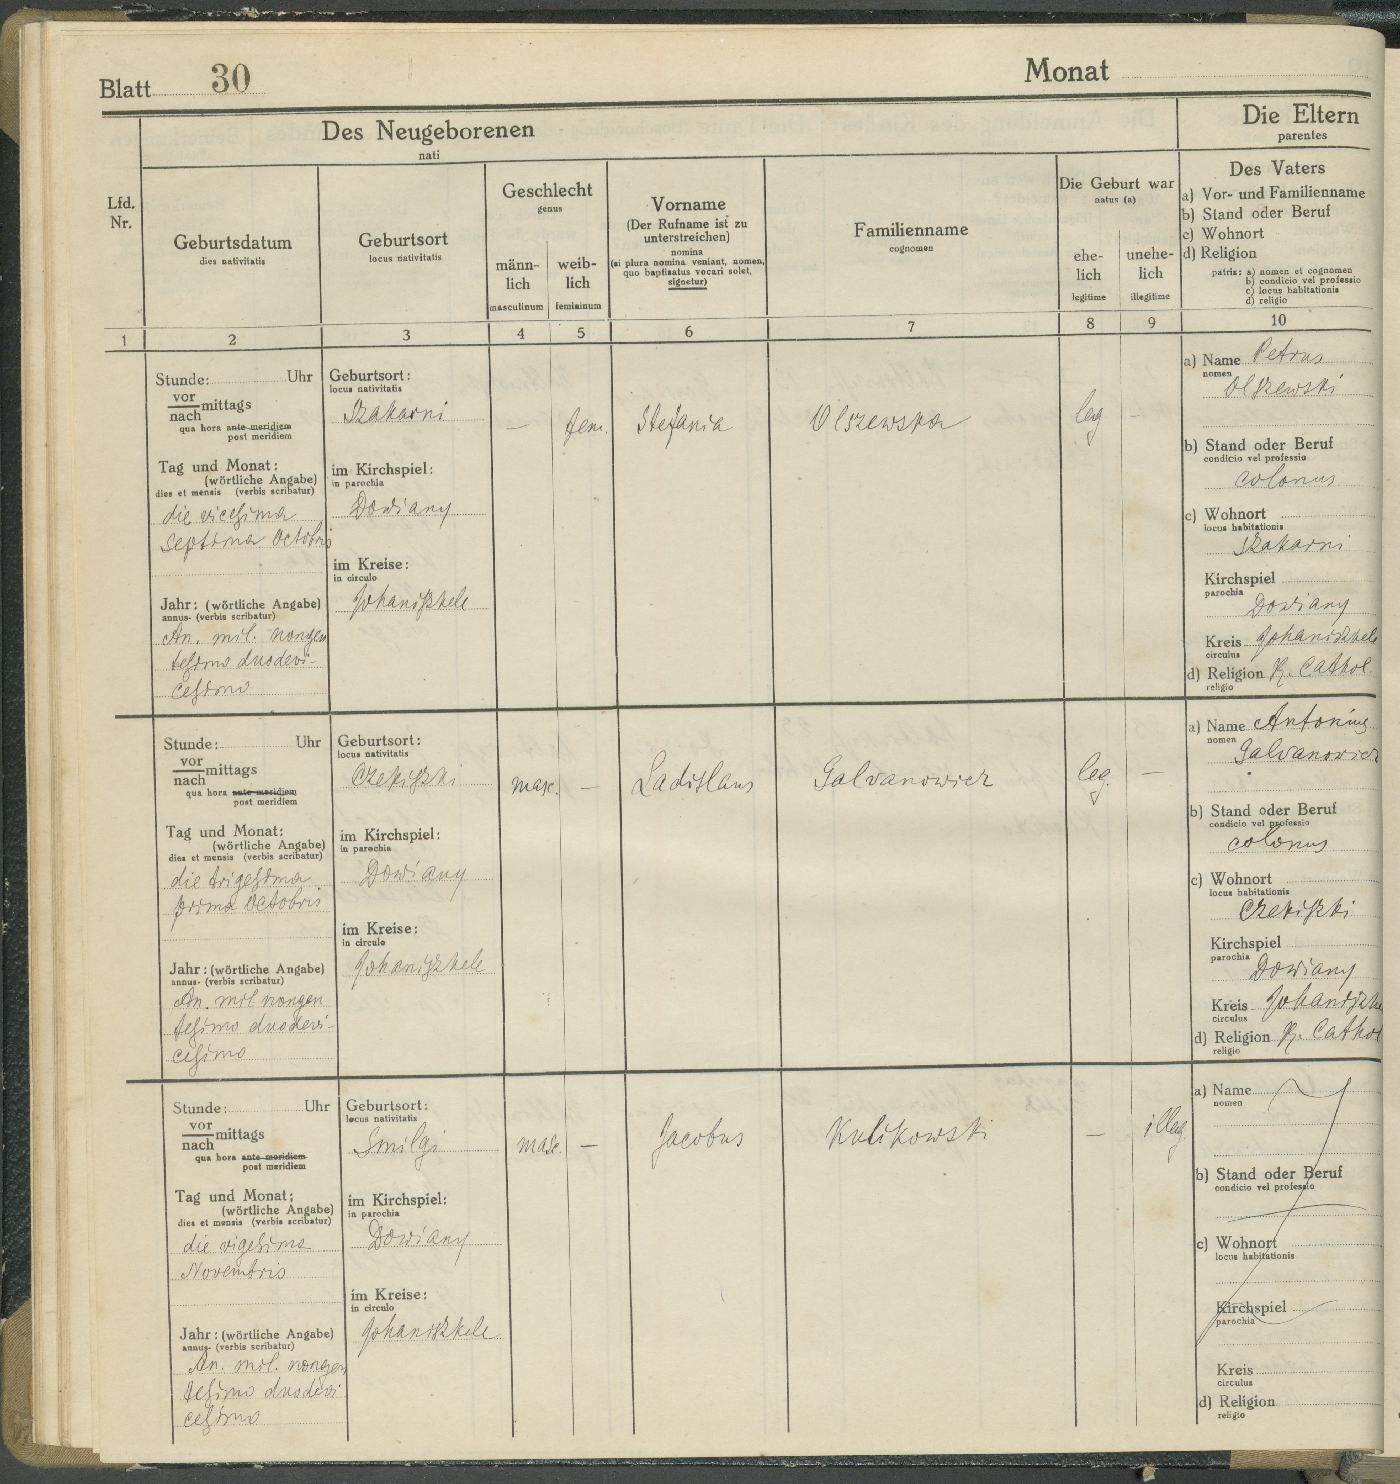 Blatt 30
Monat
Des Neugeborenen
nati
Die Eltern
parentes
Lfd.
Nr.
Geburtsdatum
dies nativitatis
Geburtsort
locus nativitatis
Geschlecht
genus
männ-
lich
masculinum
weib-
lich
femininum
Vorname
(Der Rufname ist zu
unterstreichen)
nomina
(si plura nomina veniant, nomen,
quo baptisatus vocari solet,
signetur)
Familienname
cognomen
Die Geburt war
natus (a)
ehe-
lich
legitime
unehe-
lich
illegitime
Des Vaters
a) Vor- und Familienname
b) Stand oder Beruf
c) Wohnort
d) Religion
patris: a) nomen et cognomen
b) condicio vel professio
c) locus habitationis
d) religio
1 2 3 4 5 6 7 8 9 10
Stunde: Uhr
vor
nach mittags
qua hora ante meridiem
post meridiem
Tag und Monat:
(wörtliche Angabe)
dies et mensis (verbis scribatur)
die vicesima
septima Octobris
Jahr: (wörtliche Angabe)
annus- (verbis scribatur)
An. mil. nongen
tesimo duodevi-
cesimo
Geburtsort:
locus nativitatis
Szakarni
im Kirchspiel:
in parochia
Dowiany
im Kreise:
in circulo
Johaniszkele
—
fem.
Stefania
Olszewska
leg
—
a) Name Petrus
nomen
Olszewski
b) Stand oder Beruf
condicio vel professio
colonus
c) Wohnort
locus habitationis
Szakarni
Kirchspiel
parochia
Dowiany
Kreis Johaniszkele
circulus
d) Religion R. Cathol
religio
Stunde: Uhr
vor
nach mittags
qua hora ante meridiem
post meridiem
Tag und Monat:
(wörtliche Angabe)
dies et mensis (verbis scribatur)
die trigesima
prima Octobris
Jahr: (wörtliche Angabe)
annus- (verbis scribatur)
An. mil nongen
tesimo duodevi-
cesimo
Geburtsort:
locus nativitatis
Czekiszki
im Kirchspiel:
in parochia
Dowiany
im Kreise:
in circulo
Johaniszkele
masc.
—
Ladislaus
Galvanowicz
leg.
—
a) Name Antonius
nomen
Galvanowicz
b) Stand oder Beruf
condicio vel professio
colonus
c) Wohnort
locus habitationis
Czekiszki
Kirchspiel
parochia
Dowiany
Kreis Johaniszke
circulus
d) Religion R. Cathol
religio
Stunde: Uhr
vor
nach mittags
qua hora ante meridiem
post meridiem
Tag und Monat:
(wörtliche Angabe)
dies et mensis (verbis scribatur)
die vigesima
Novembris
Jahr: (wörtliche Angabe)
annus- (verbis scribatur)
An. mil. nongen
tesimo duodevi
cesimo
Geburtsort:
locus nativitatis
Smilgi
im Kirchspiel:
in parochia
Dowiany
im Kreise:
in circulo
Johaniszkele
masc.
—
Jacobus
Kulikowski
—
illeg.
a) Name
nomen
b) Stand oder Beruf
condicio vel professio
c) Wohnort
locus habitationis
Kirchspiel
parochia
Kreis
circulus
d) Religion
religio